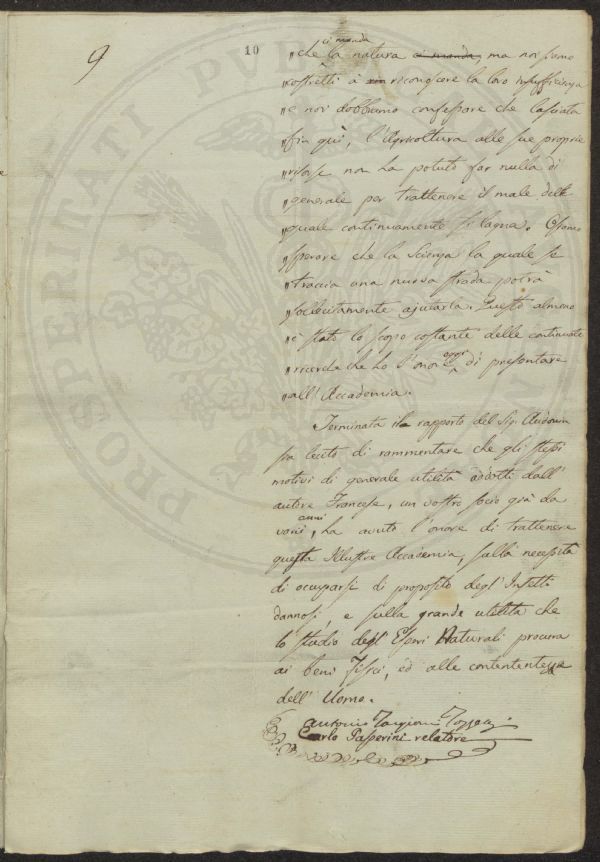 9
10
ci manda
"che la natura ci manda, ma noi siamo
"costretti à rin riconoscere la loro insufficienza
"e noi dobbiamo confessare che lasciata
"fin quì, l'Agricoltura alle sue proprie
"risorse non ha potuto far nulla di
"generale per trattenere il male del
"quale continuamente si lagna. Osiamo
"sperare che la Scienza la quale si
"traccia una nuova strada potrà
"sollecitamente ajutarla. Questo almeno
"è stato lo scopo costante delle continuate
"ricerche che ho l'onor oggi di presentare
"all'Accademia.
Terminato il rapporto del Sig. Audouin
sia lecito di rammentare che gli stessi
motivi di generale utilità addotti dall'
autore Francese, un vostro socio già da
varii anni, ha avuto l'onore di trattenere
questa Illustre Accademia, sulla necessità
di occuparsi di proposito degl'Insetti
dannosi, e sulla grande utilità che
lo studio degl'Esseri Naturali procura
ai beni fisici, ed alle contententezze
dell'Uomo.
Antonio Targioni Tozzetti
Carlo Passerini relatore
PROSPERITATI